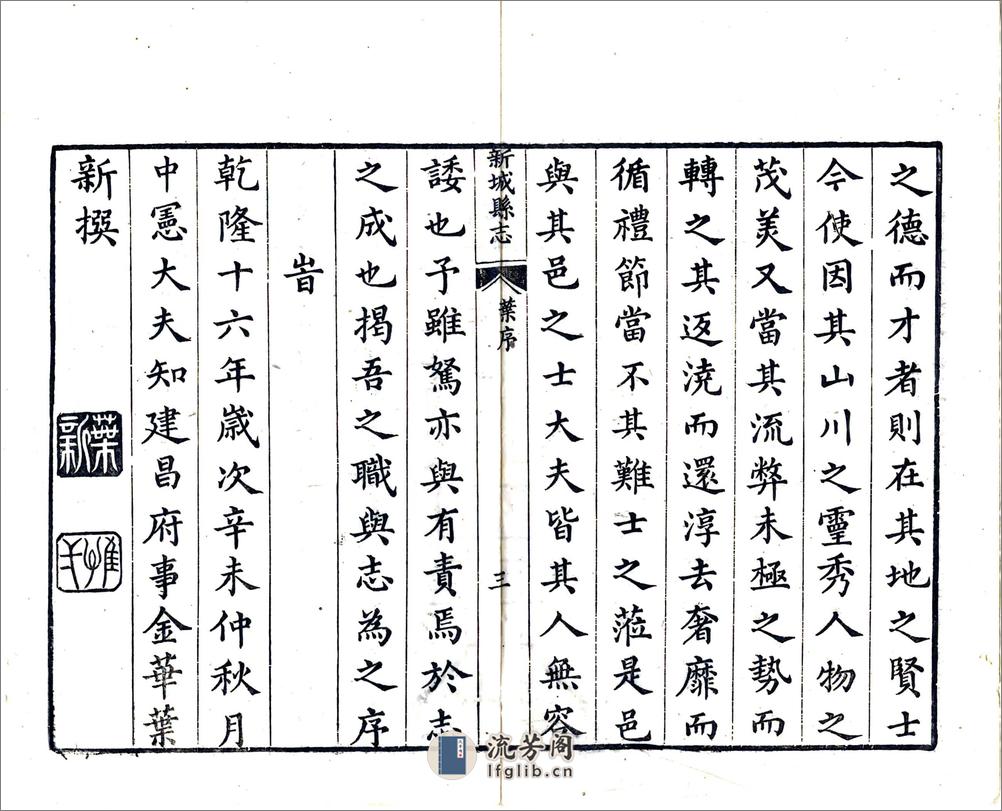 之德而才者則在其地之賢士
今使因其山川之靈秀人物之
茂美又當其流弊未極之勢而
轉之其返澆而還淳去奢靡而
循禮節當不其難士之蒞是邑
與其邑之士大夫皆其人無容
新城縣志 葉序 三
諉也予雖駑亦與有責焉於志
之成也揭吾之職與志為之序
旹
乾隆十六年歲次辛未仲秋月
中憲大夫知建昌府事金華葉
新撰
葉新
惟一
流芳阁
lfglib.cn